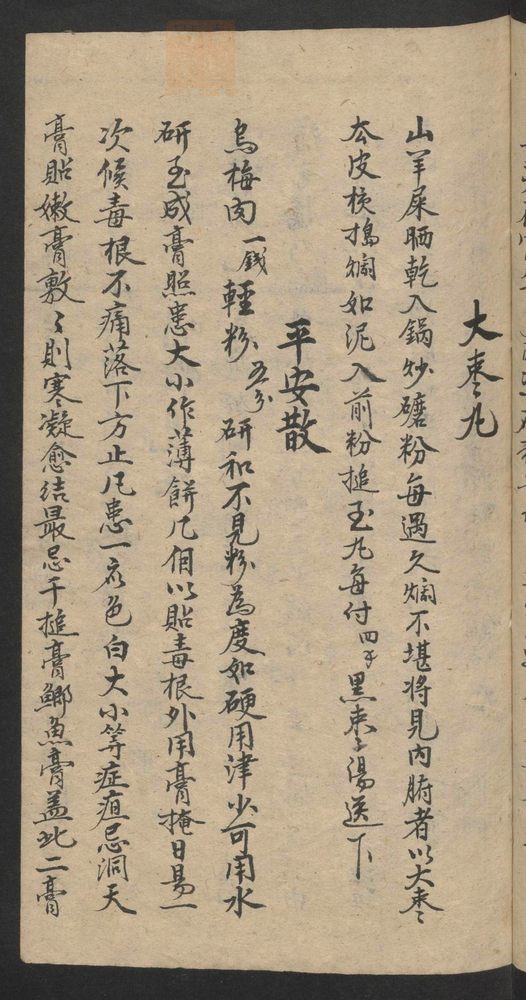 大枣丸
山羊屎晒乾入鍋炒磨粉每遇久爛不堪将見内腑者以大枣
去皮核搗爛如泥入前粉搥至丸每付四錢黑枣湯送下
平安散
烏梅肉一錢輕粉五分研和不見粉為度如硬用津少可用水
研至成膏照患大小作薄餅几個以貼毒根外用膏掩日易一
次候毒根不痛落下方止凡患一應色白大小等症疽忌洞天
膏貼嫩膏敷〻則寒凝愈結最忌千搥膏鯽魚膏盖此二膏